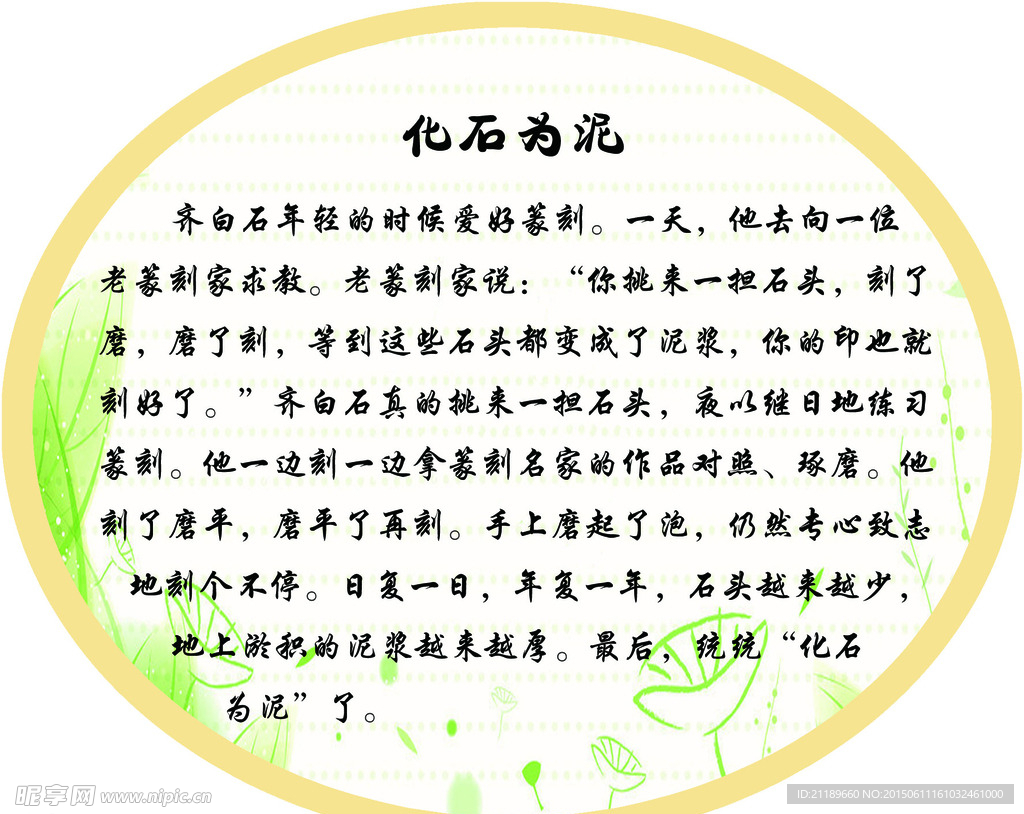 化石为泥
齐白石年轻的时候爱好篆刻。一天，他去向一位
老篆刻家求教。老篆刻家说：“你挑来一担石头，刻了
磨，磨了刻，等到这些石头都变成了泥浆，你的印也就
刻好了。”齐白石真的挑来一担石头，夜以继日地练习
篆刻。他一边刻一边拿篆刻名家的作品对照、琢磨。他
刻了磨平，磨平了再刻。手上磨起了泡，仍然专心致志
地刻个不停。日复一日，年复一年，石头越来越少，
地上淤积的泥浆越来越厚。最后，统统“化石
为泥”了。
昵享网 www.nipic.cn
ID:21189660 NO:20150611161032461000